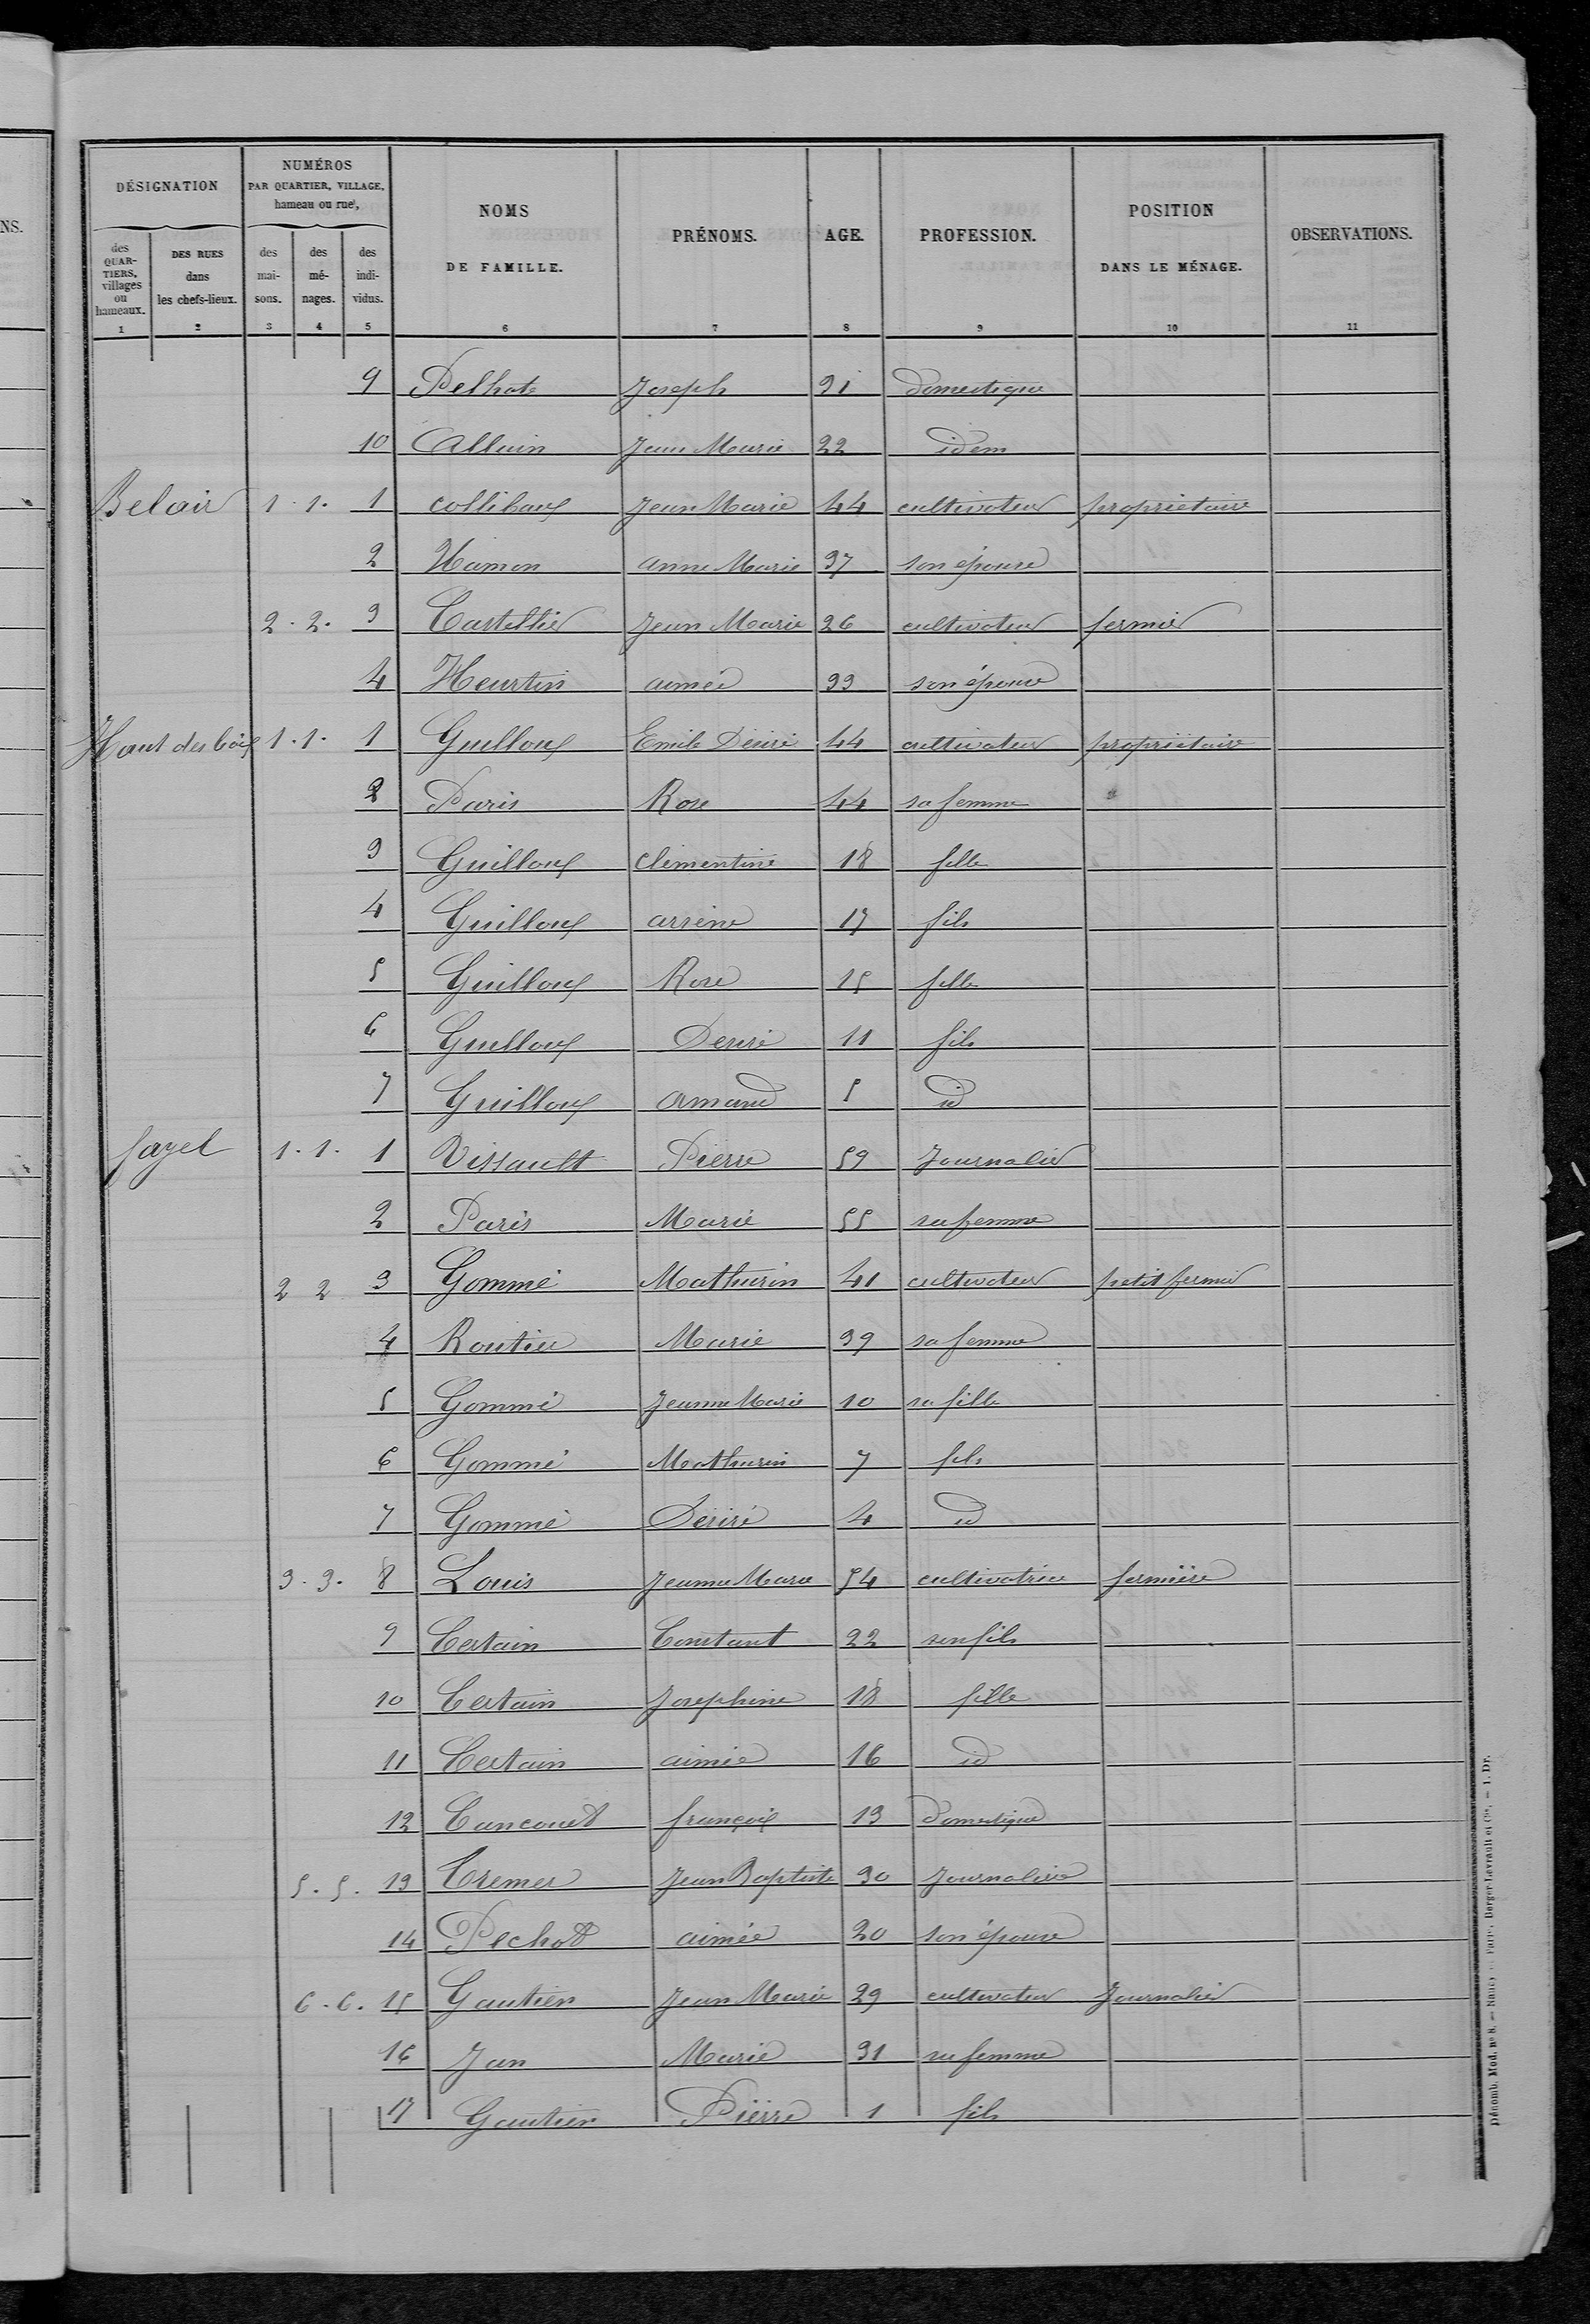 NS.
DÉSIGNATION
NUMÉROS
PAR QUARTIER, VILLAGE,
hameau ou rue,
NOMS
DE FAMILLE.
PRÉNOMS.
AGE.
PROFESSION.
POSITION
DANS LE MÉNAGE.
OBSERVATIONS.
des QUARTIERS, villages ou hameaux.
DES RUES dans les chefs-lieux.
des maisons.
des ménages.
des individus.
1 2 3 4 5 6 7 8 9 10 11
9 Pelhate Joseph 31 domestique
10 Allain Jean Marie 22 idem
Belair 1. 1. 1 Collibaux Jean Marie 44 cultivateur propriétaire
2 Hamon anne Marie 37 son épouse
2. 2. 3 Castellier Jean Marie 26 cultivateur fermier
4 Heurtin aimée 33 son épouse
Haut des bois 1. 1. 1 Guilloux Emile Désiré 44 cultivateur propriétaire
2 Paris Rose 44 sa femme
3 Guilloux Clémentine 18 fille
4 Guilloux arsène 17 fils
5 Guilloux Rose 15 fille
6 Guilloux Desiré 11 fils
7 Guilloux Amand 5 id
fayel 1. 1. 1 Vissault Pierre 59 Journalier
2 Paris Marie 55 sa femme
2 2 3 Gommé Mathurin 41 cultivateur petit fermier
4 Routier Marie 39 sa femme
5 Gommé Jeanne Marie 10 sa fille
6 Gommé Mathurin 7 fils
7 Gommé Désiré 4 id
3. 3. 8 Louis Jeanne Marie 54 cultivatrice fermière
9 Certain Constant 22 son fils
10 Certain Josephine 18 fille
11 Certain aimée 16 id
12 Cancouet françois 13 Domestique
5. 5. 13 Cremer Jean Baptiste 30 Journalier
14 Pechot aimée 20 son épouse
6. 6. 15 Gautier Jean Marie 29 cultivateur Journalier
16 Jan Marie 31 sa femme
17 Gautier Pierre 1 fils
Dénomb. Mod. nº 8. — Nancy et Paris, Berger-Levrault et Cie. — 1. Dr.